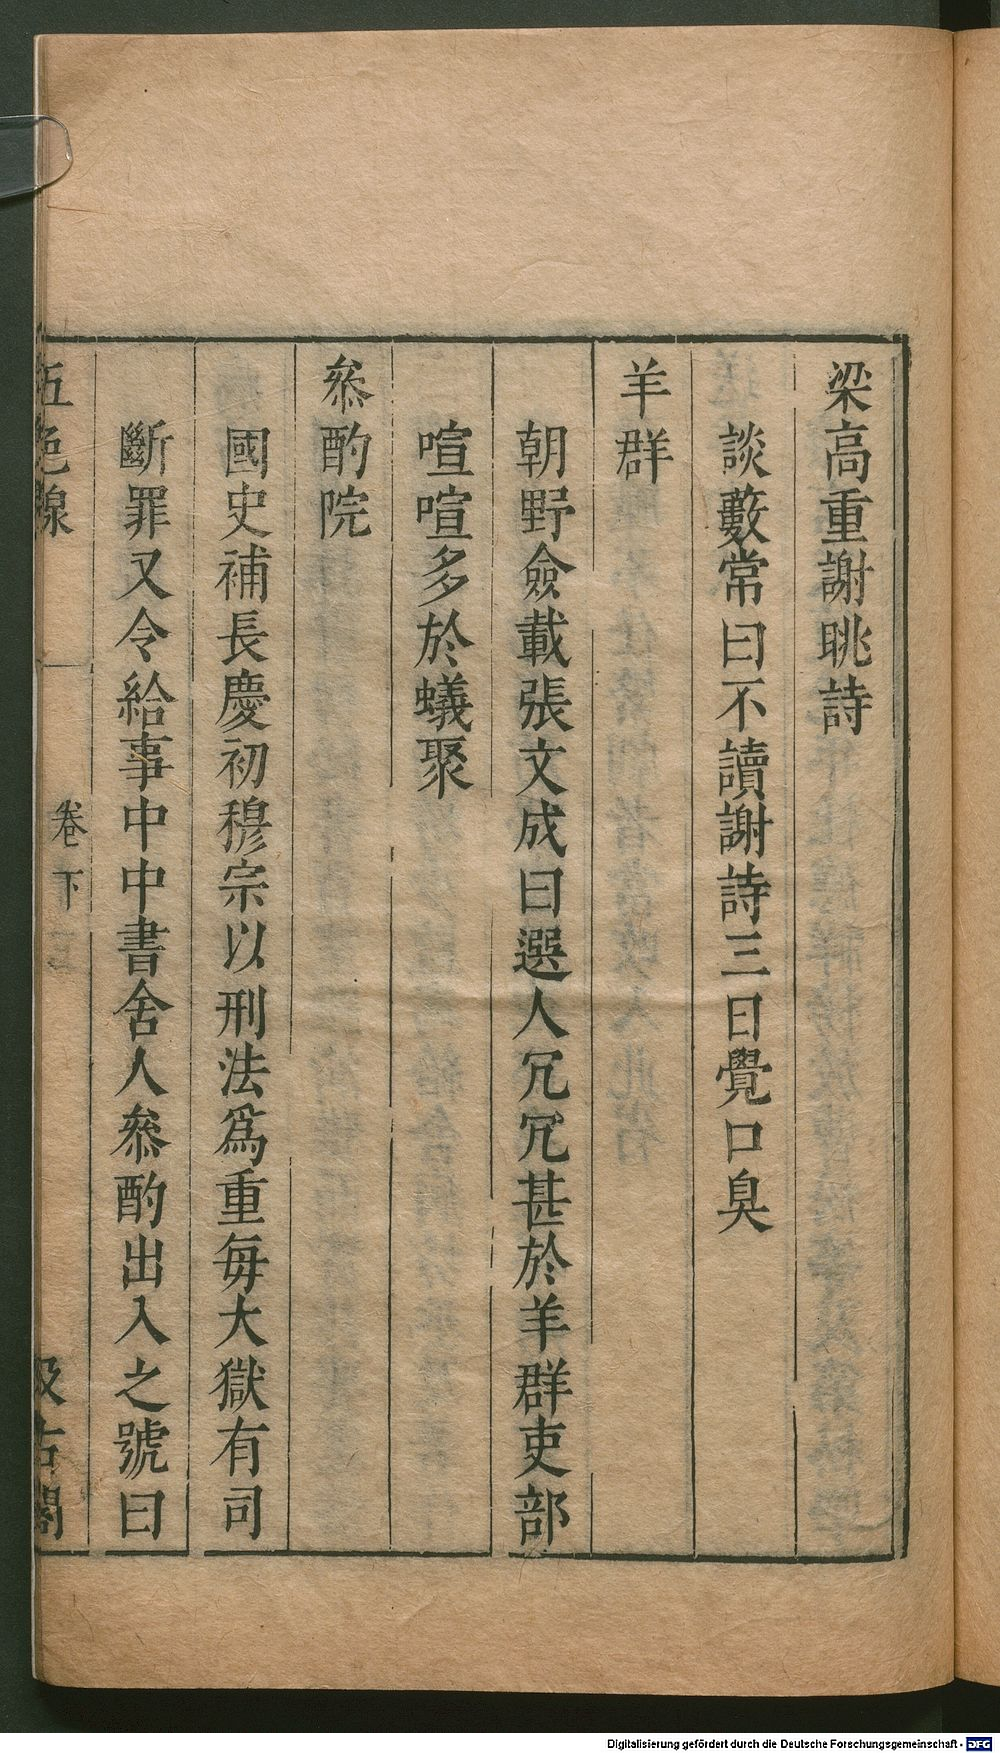 梁高重謝眺詩
談藪常曰不讀謝詩三日覺口臭
羊群
朝野僉載張文成曰選人冗冗甚於羊群吏部
喧喧多於蟻聚
叅酌院
國史補長慶初穆宗以刑法爲重每大獄有司
斷罪又令給事中中書舍人叅酌出入之號曰
五色線
卷下
汲古閣
Digitalisierung gefördert durch die Deutsche Forschungsgemeinschaft - DFG